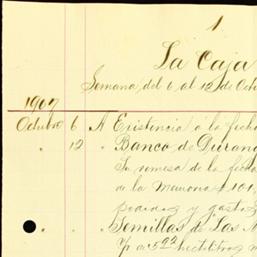 1
La Caja
Semana del 6 al 12 de Octu
1907
Octubre 6 A Existencia a la fecha
" 12 " Banco de Durang
Su remesa de la fecha
de la Memoria # 101,
y gastos
" " Semillas de Las N
522 hectolitros m